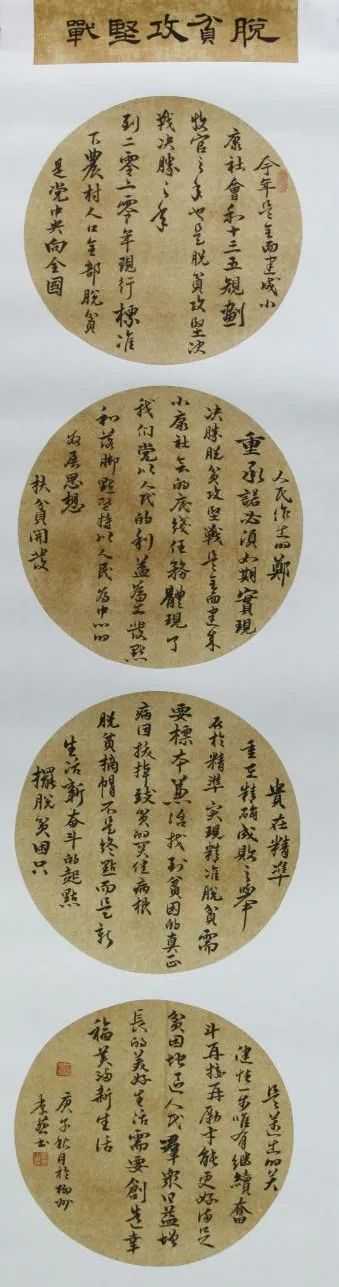 脫貧攻堅戰
今年是全面建成小
康社會和十三五規劃
收官之年也是脫貧攻堅决
戰决勝之年
到二零二零年現行標准
下農村人口全部脫貧
是党中央向全國
人民作出的鄭
重承諾必須如期實現
决勝脫貧攻堅戰是全面建成
小康社會的底线任務體現了
我们党以人民的利益為出發點
和落脚點堅持以人民為中心的
發展思想
扶貧開發
貴在精準
重在精确成敗之舉
在於精準实現精準脫貧需
要標本兼治找到貧困的真正
病因拔掉致貧的关健病根
脫貧摘帽不是終點而是新
生活新奋斗的起點
擺脫貧困只
是邁出的关
健性一步唯有继續奮
斗再接再励才能更好滿足
貧困地區人民羣衆日益增
長的美好生活需要創造幸
福美滿新生活
庚子秋月於柳州
李書